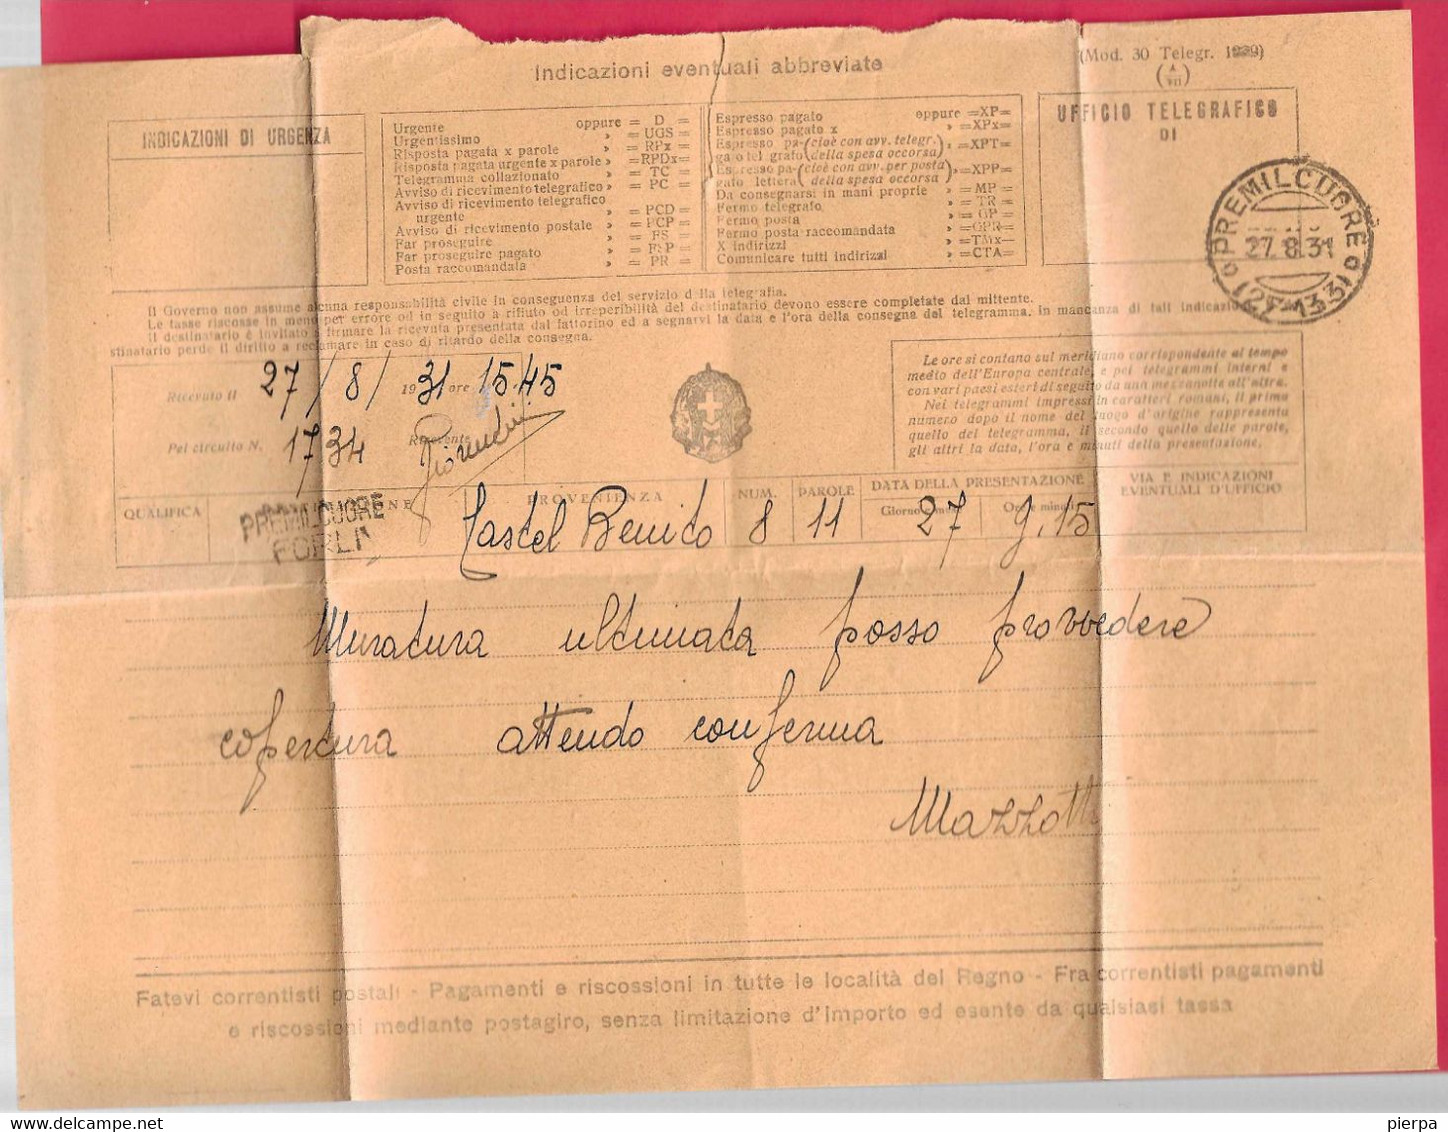 Indicazioni eventuali abbreviate
(Mod. 30 Telegr. 1939)
INDICAZIONI DI URGENZA
Urgente oppure = D =
Urgentissimo » = UGS =
Risposta pagata x parole » = RPx =
Risposta pagata urgente x parole » =RPDx=
Telegramma collazionato » = TC =
Avviso di ricevimento telegrafico » = PC =
Avviso di ricevimento telegrafico
urgente » = PCD =
Avviso di ricevimento postale » = PCP =
Far proseguire » = FS =
Far proseguire pagato » = FSP =
Posta raccomandata » = PR =
Espresso pagato oppure =XP=
Espresso pagato x » =XPx=
Espresso pa-(cioè con avv. telegr.
gato telegrafo (della spesa occorsa) » =XPT=
Espresso pa-(cioè con avv. per posta
gato lettera (della spesa occorsa) » =XPP=
Da consegnarsi in mani proprie » = MP =
Fermo telegrafo » = TR =
Fermo posta » = GP =
Fermo posta raccomandata » =GPR=
X indirizzi » =TMx=
Comunicare tutti indirizzi » =CTA=
UFFICIO TELEGRAFICO
DI
PREMILCUORE
27.8.31
Il Governo non assume alcuna responsabilità civile in conseguenza del servizio della telegrafia.
Le tasse riscosse in meno per errore od in seguito a rifiuto od irreperibilità del destinatario devono essere completate dal mittente.
Il destinatario è invitato a firmare la ricevuta presentata dal fattorino ed a segnarvi la data e l'ora della consegna del telegramma. In mancanza di tali indicazioni
stinatario perde il diritto a reclamare in caso di ritardo della consegna.
Ricevuto il 27/8/1931 ore 15.45
Pel circuito N. 1734 Ricevente
Le ore si contano sul meridiano corrispondente al tempo
medio dell'Europa centrale, e pei telegrammi interni e
con vari paesi esteri di seguito da una mezzanotte all'altra.
Nei telegrammi impressi in caratteri romani, il primo
numero dopo il nome del luogo d'origine rappresenta
quello del telegramma, il secondo quello delle parole,
gli altri la data, l'ora e minuti della presentazione.
QUALIFICA
PROVENIENZA
NUM.
PAROLE
DATA DELLA PRESENTAZIONE
VIA E INDICAZIONI
EVENTUALI D'UFFICIO
PREMILCUORE
FORLI
Castel Benito 8 11 27 9.15
Muratura ultimata posso provvedere
copertura attendo conferma
Mazzotti
Fatevi correntisti postali - Pagamenti e riscossioni in tutte le località del Regno - Fra correntisti pagamenti
e riscossioni mediante postagiro, senza limitazione d'importo ed esente da qualsiasi tassa
pierpa